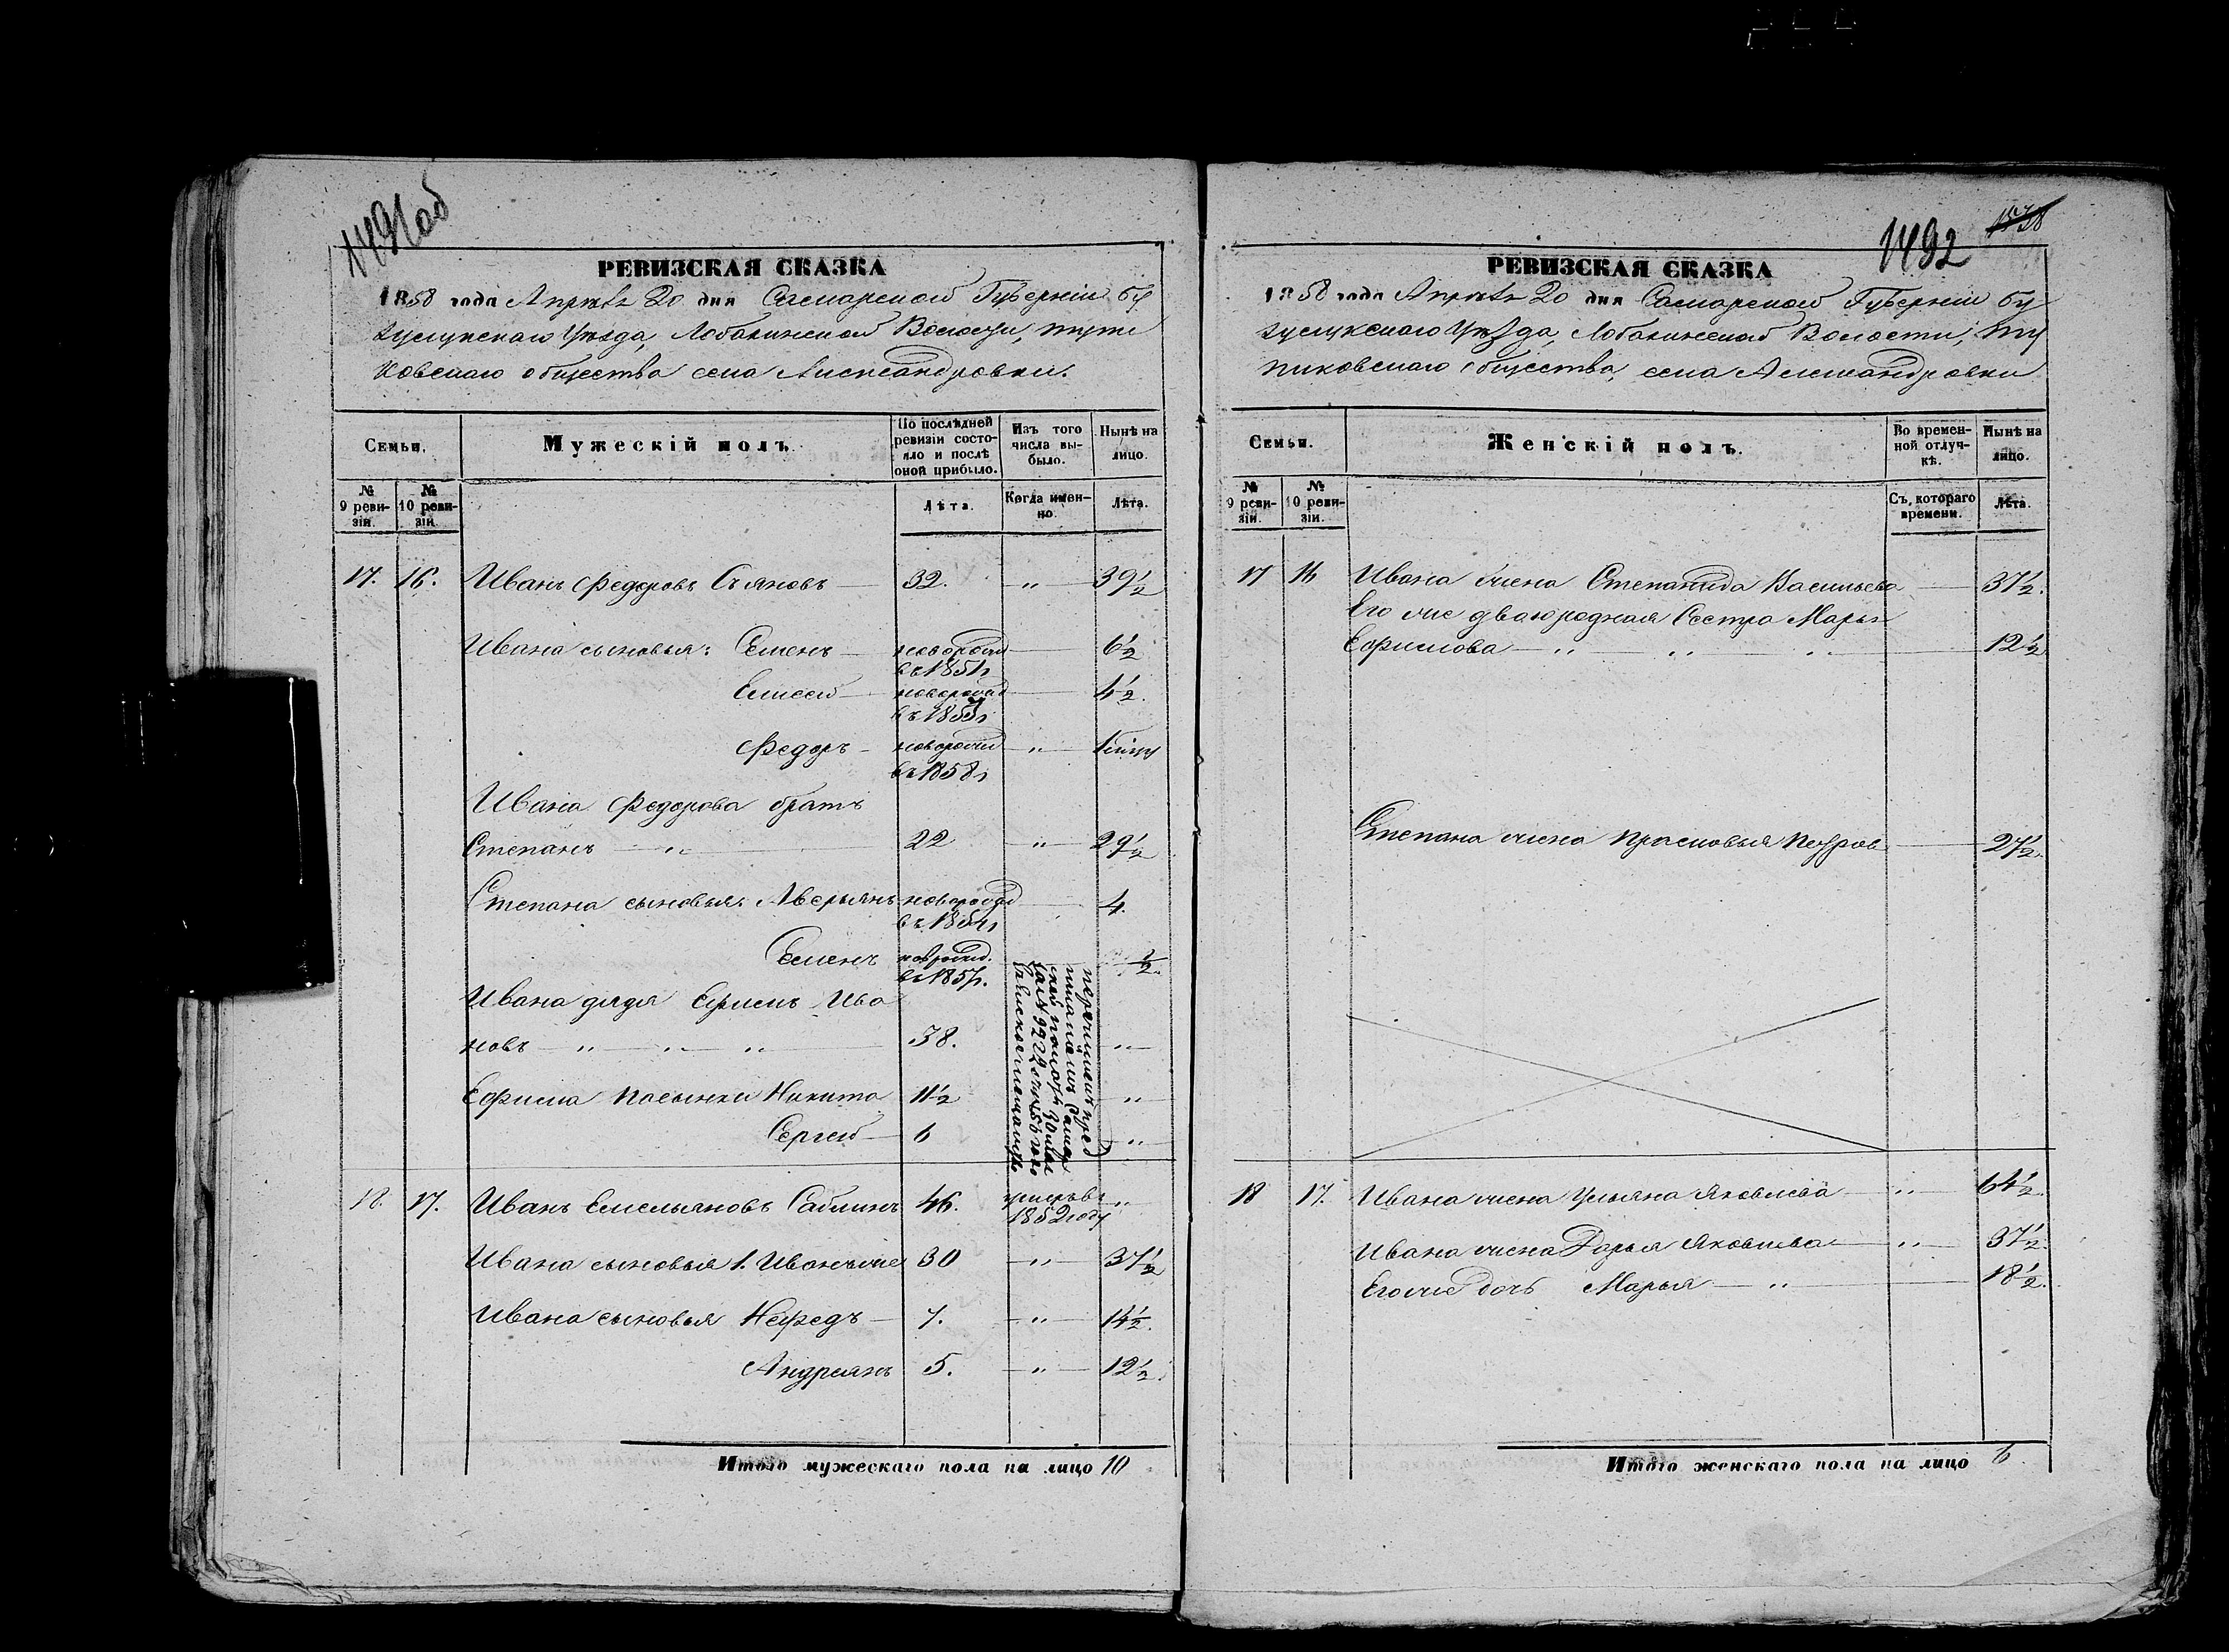 1491 об
РЕВИЗСКАЯ СКАЗКА
1858 года Апрѣля 20 дня Самарской Губерніи Бу
зулукскаго Уѣзда, Лобазинской Волости, Тупи
ковскаго общества села Александровки.
Семьи.
Мужескій полъ.
По послѣдней ревизіи состояло и послѣ оной прибыло.
Изъ того числа выбыло.
Нынѣ на лицо.
№ 9 ревизіи.
№ 10 ревизіи.
Лѣта.
Когда именно.
Лѣта.
17. 16. Иванъ Федоровъ Съяновъ 32. " 39½
Ивана сыновья: Семенъ новорожд 6½
въ 1851г
Елисей новорожд 4½.
въ 1853г
Федоръ новорожд "
въ 1858г
Ивана Федорова братъ
Степанъ " 22 " 29½
Степана сыновья: Аверьянъ новорожд 4.
въ 1854г
Семенъ новорожд. ½.
въ 1857г.
Ивана дядя Ефимъ Ива
новъ " " " 38. "
Ефима пасынки Никита 11½ "
Сергей 6 "
18. 17. Иванъ Емельяновъ Саблинъ 46. умеръ въ "
1852 году
Ивана сыновья 1. Иванъ же 30 " 37½
Ивана сыновья Нефедъ 7. " 14½.
Андреянъ 5. " 12½.
Итого мужескаго пола на лицо 10
1492
1538
РЕВИЗСКАЯ СКАЗКА
1858 года Апрѣля 20 дня Самарской Губерніи Бу
зулукскаго Уѣзда, Лобазинской Волости, Ту
пиковскаго общества, села Александровки
Семьи.
Женскій полъ.
Во временной отлучкѣ.
Нынѣ на лицо.
№ 9 ревизіи.
№ 10 ревизіи.
Съ котораго времени.
Лѣта.
17 16 Ивана жена Степанида Васильева 37½.
Его же двоюродная Сестра Марья
Ефимова " " " 12½
Степана жена Прасковья Петров 27½.
18 17. Ивана жена Ульяна Яковлева " 64½.
Ивана жена Дарья Яковлева " 37½.
Его же дочь Марья " 18½.
Итого женскаго пола на лицо 6